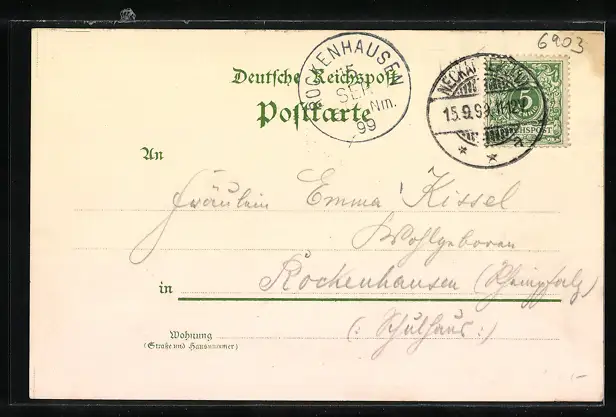 6903
ROCKENHAUSEN
15
SEP
Nm.
99
15.9.99. 11-12V
a
5
REICHSPOST
Deutsche Reichspost
Postkarte
An
Fräulein Emma Kissel
Wohlgeboren
in Rockenhausen (Rheinpfalz)
(: Schulhaus :)
Wohnung
(Straße und Hausnummer)